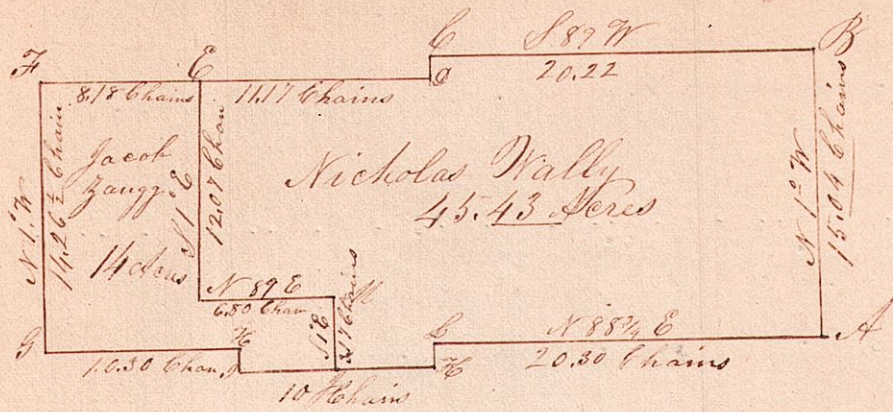 F
E
C
S 89 W
B
8.18 Chains
11.17 Chains
D
20.22
N 1° W
14.26½ Chain
Jacob
Zaugg
14 Acres
S 1° E
12.07 Chan
Nicholas Wally
45.43 Acres
N 1° W
15.04 Chains
N 89 E
6.80 Chain
M
S 1° E
3.17 Chains
G
10.30 Chan
H
L
N 88¾ E
A
K
20.30 Chains
10 Chains